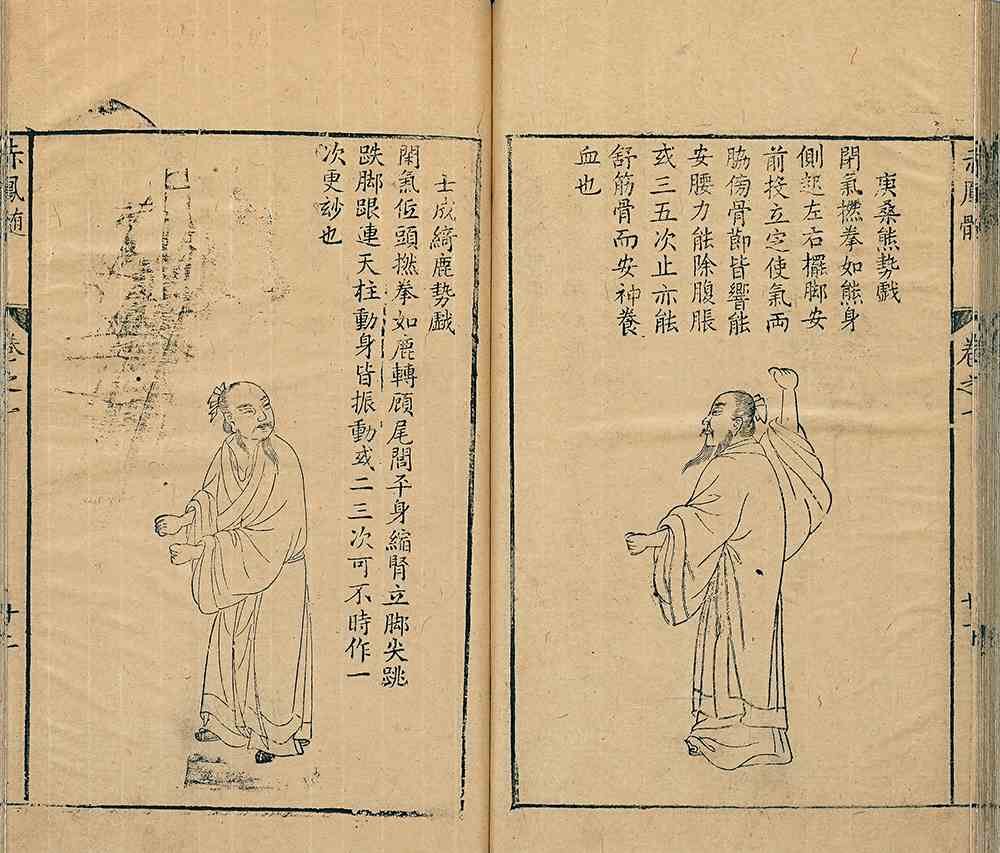 赤鳳髓
卷之一
庚桑熊勢戲
閉氣撚拳如熊身
側起左右擺脚安
前投立定使氣兩
脇傍骨節皆響能
安腰力能除腹脹
或三五次止亦能
舒筋骨而安神養
血也
士成綺鹿勢戲
閉氣低頭撚拳如鹿轉頋尾閭平身縮腎立脚尖跳
跌脚跟連天柱動身皆振動或二三次可不時作一
次更玅也
赤鳳髓
卷之一